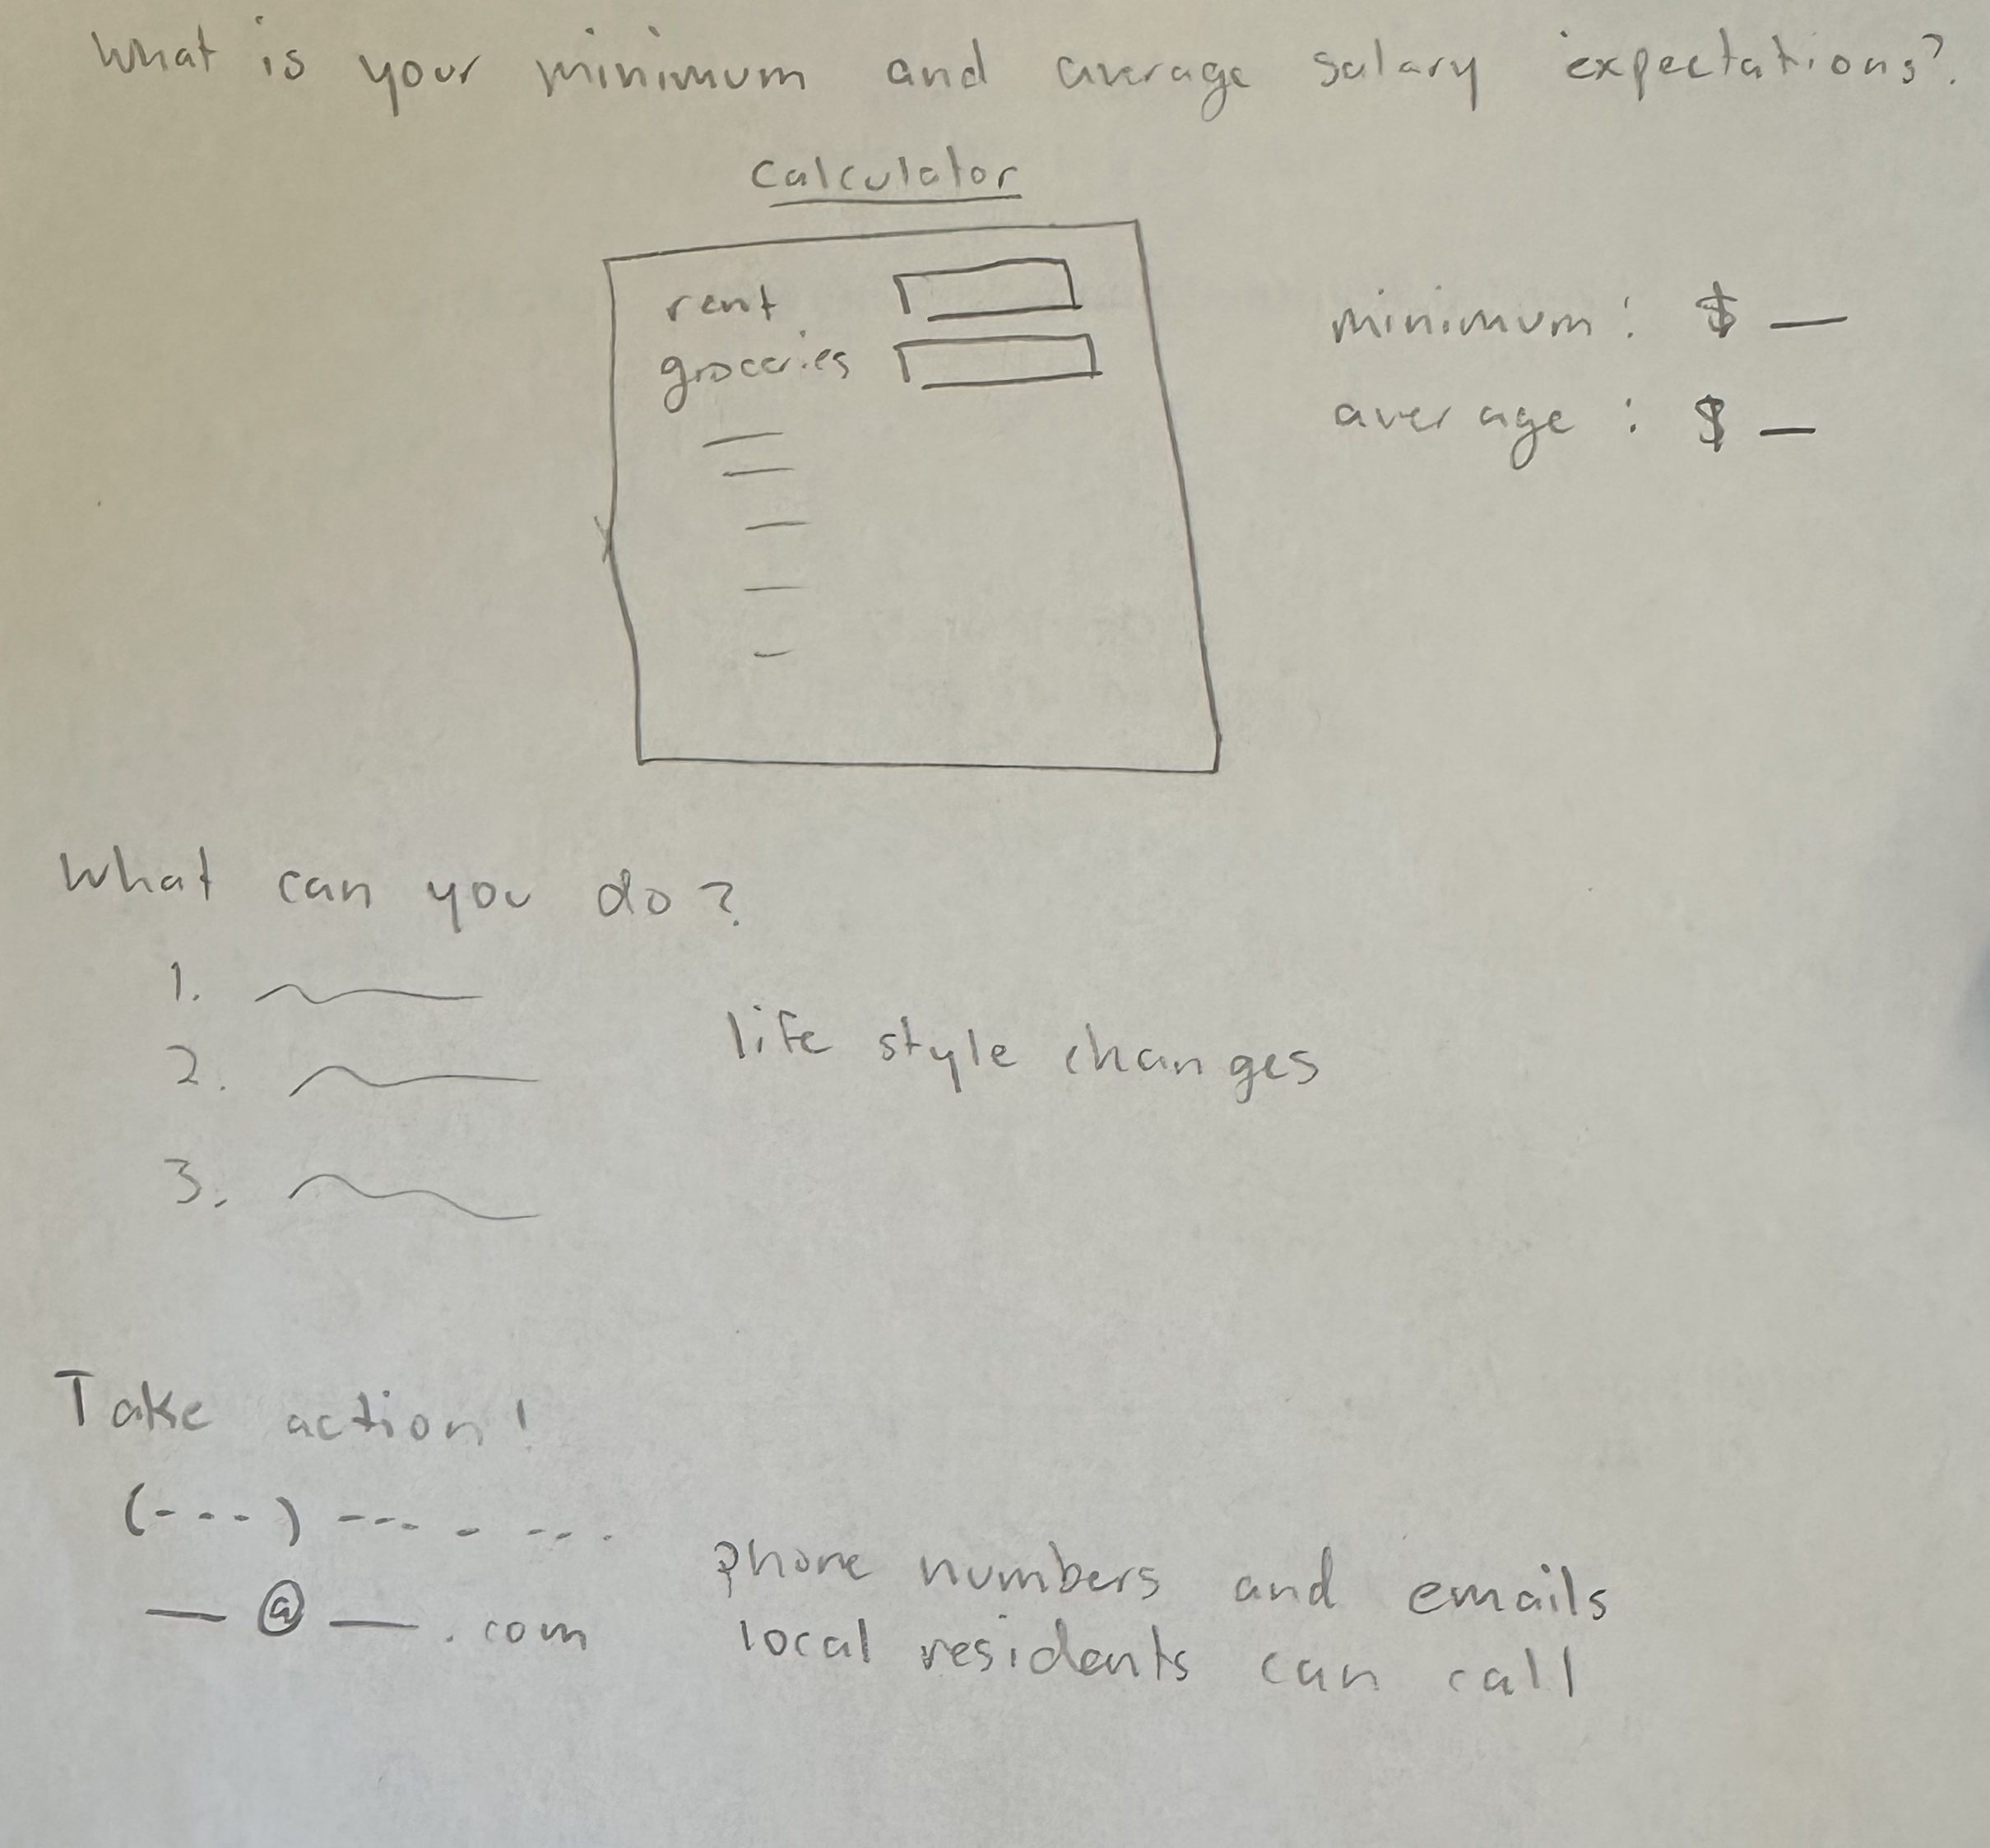 What is your minimum and average salary expectations?
Calculator
rent
groceries
minimum: $ —
average: $ —
What can you do?
1.
2.
life style changes
3.
Take action!
(---) --- - ---.
— @ — .com
phone numbers and emails
local residents can call